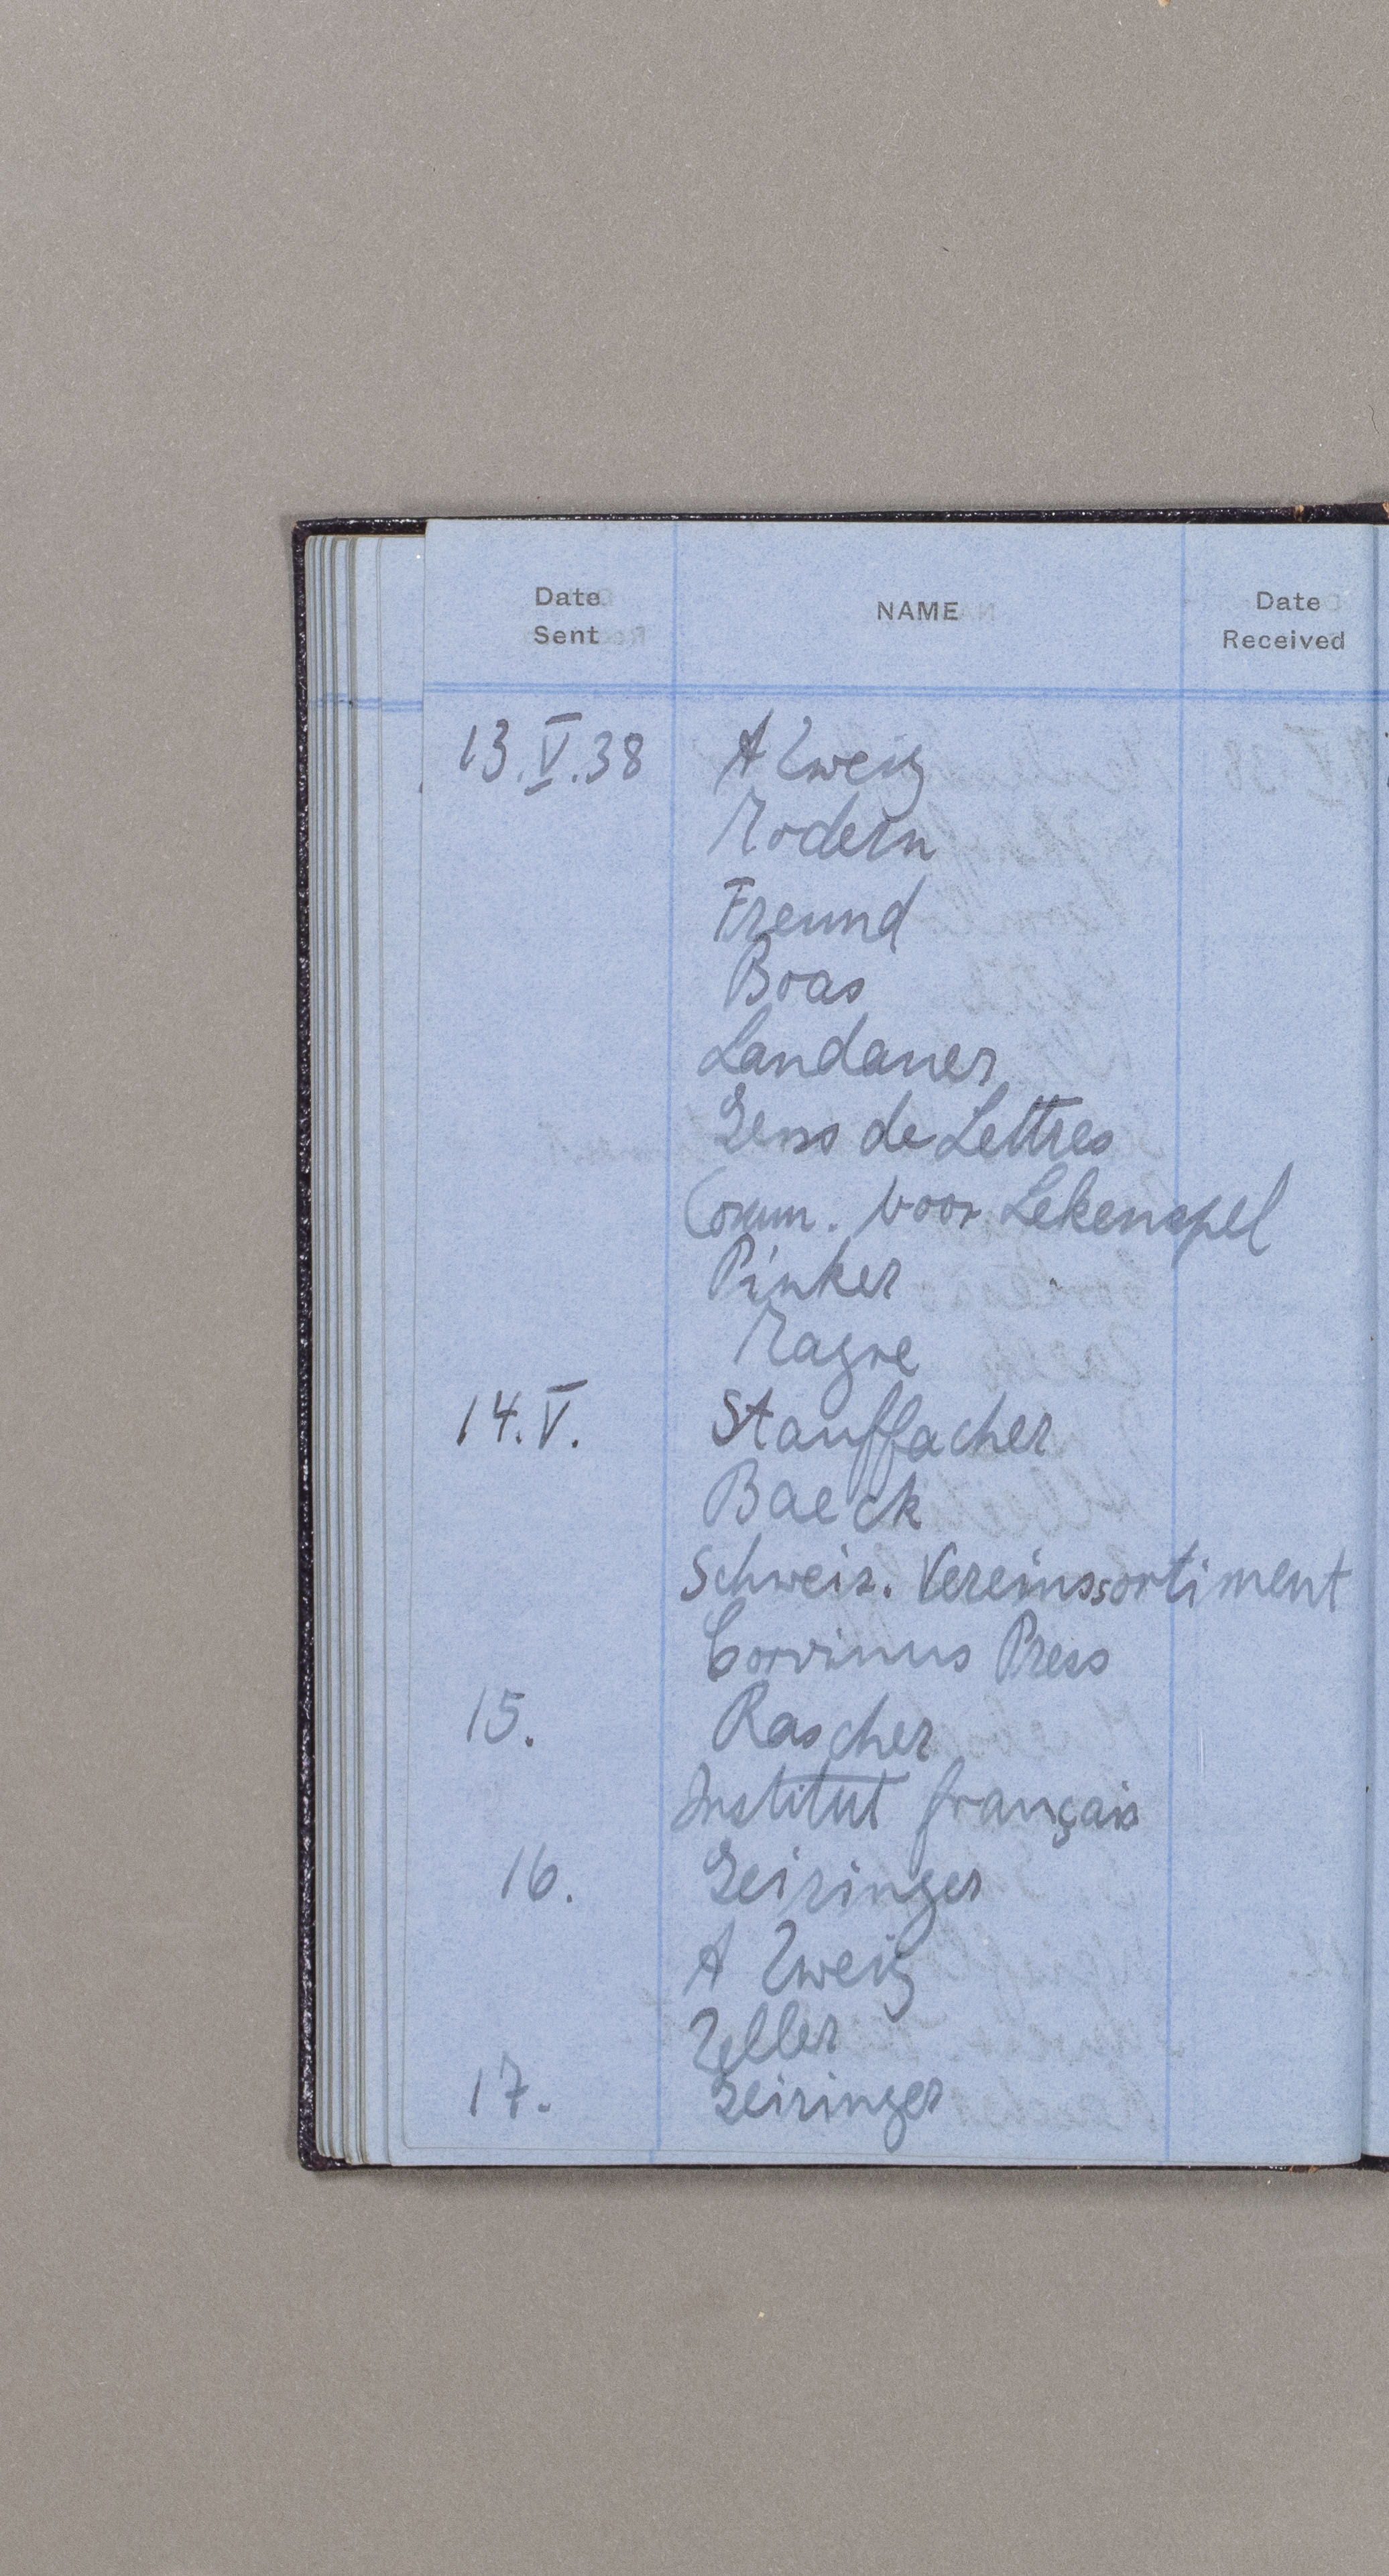 Date Sent NAME Date Received
13.V.38 A Zweig
Modern
Freund
Boas
Landauer
Gens de Lettres
Comm. voor Lekenspel
Pinker
Magre
14.V. Stauffacher
Baeck
Schweiz. Vereinssortiment
Corvinus Press
15. Rascher
Institut français
16. Geiringer
A Zweig
Zeller
17. Geiringer